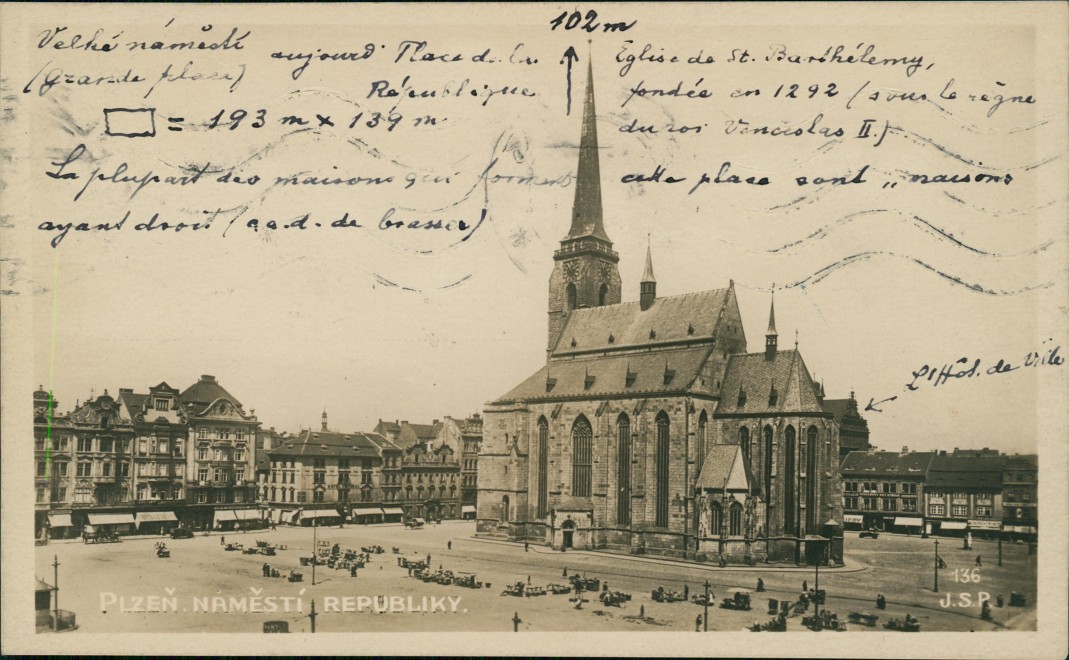 102 m
Velké náměstí aujourd' Place de la
(grande place) République
▭ = 193 m × 139 m
Eglise de St. Barthélemy,
fondée en 1292 (sous le règne
du roi Venceslas II.)
La plupart des maisons qui forment cette place sont „maisons
ayant droit (c.a.d. de brasser)
L'Hôt. de Ville
136
PLZEŇ. NÁMĚSTÍ REPUBLIKY.
J.S.P.